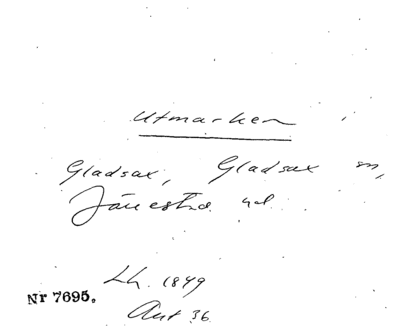 Utmarken
Gladsax, Gladsax sn,
Järrestad hd.
Lh. 1849
Nr 7695.
Ant 36